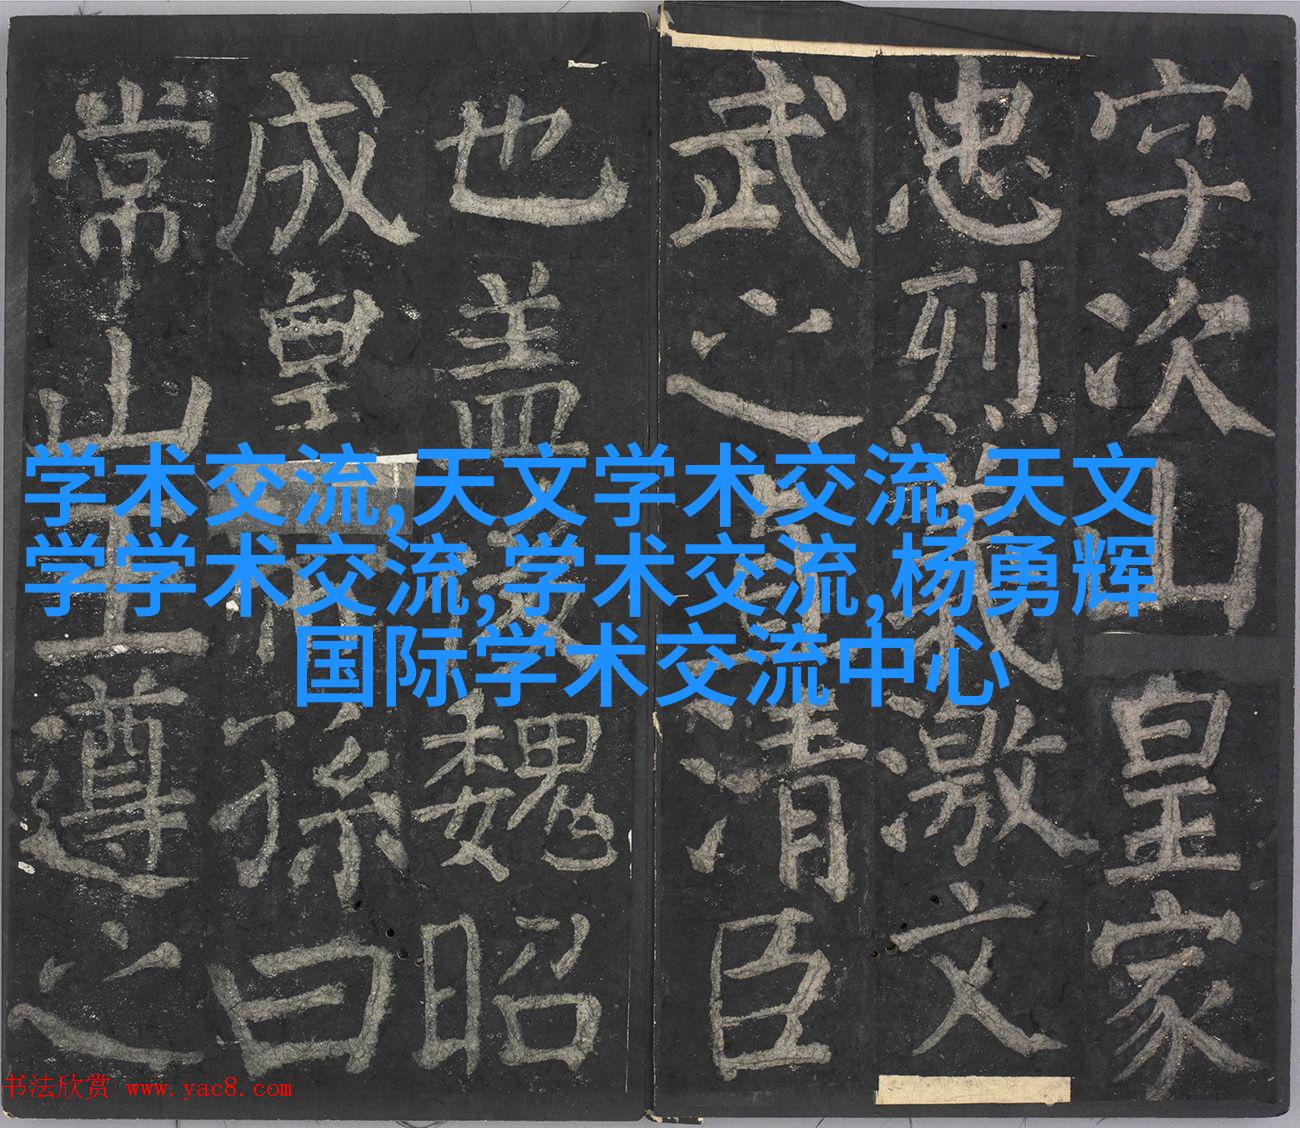 学术交流,天文学术交流,天文
学学术交流,学术交流,杨勇辉
国际学术交流中心
字次山皇家
忠烈義激文
武之直清臣
也盖後魏昭
成皇孫曰
常山王遵之
书法欣赏 www.yac8.com